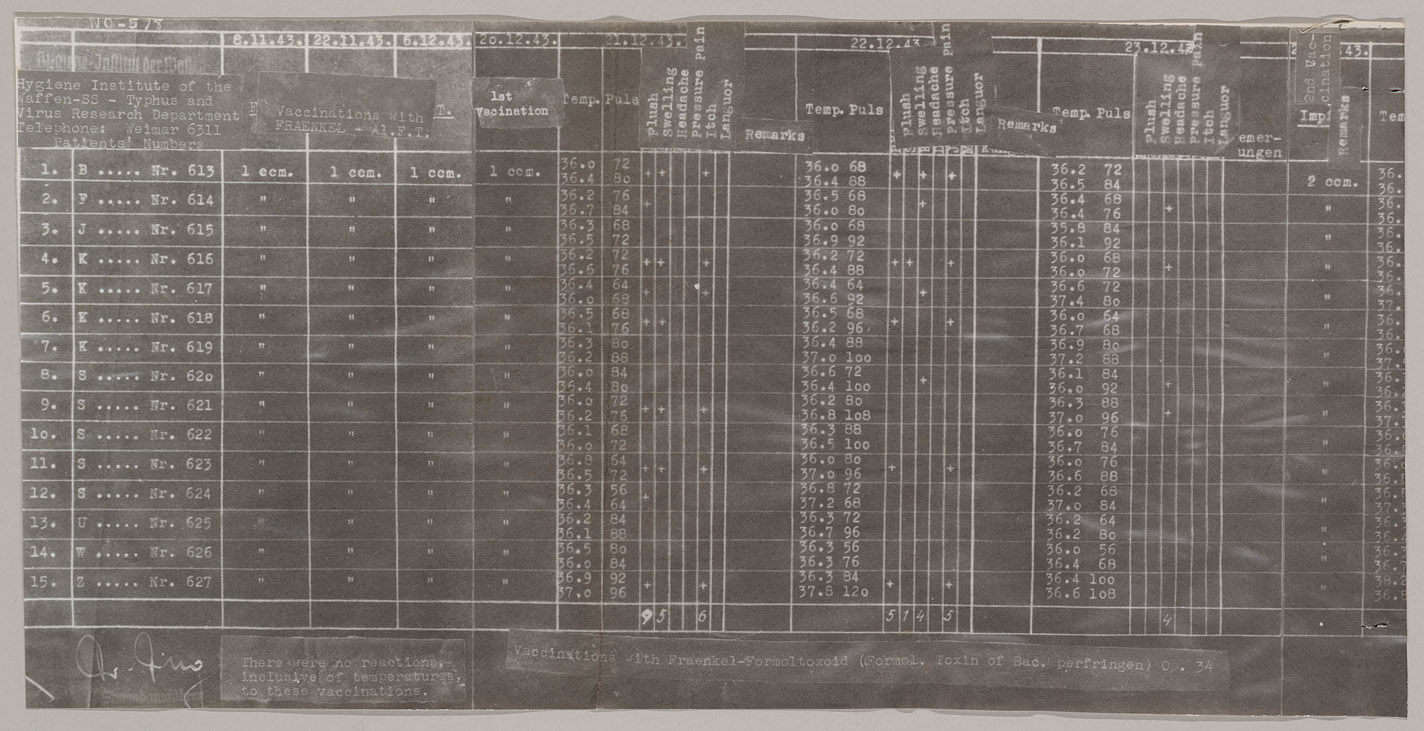 NO-578
8.11.43. 22.11.43. 6.12.43. 20.12.43. 21.12.43. 22.12.43 23.12.43 43.
Hygiene-Institut der Waffen
Hygiene Institute of the
Waffen-SS - Typhus and
Virus Research Department
Telephone: Weimar 6311
Patients' Numbers
Vaccinations with
FRAENKEL - Al.F.T.
T.
1st
Vacination
Temp. Puls Flush Swelling Headache Pressure Pain Itch Languor Remarks
Temp. Puls Flush Swelling Headache Pressure Pain Itch Languor Remarks
Temp. Puls Flush Swelling Headache Pressure Pain Itch Languor
emer-
ungen
2nd Vac-
cination
Impf
Remarks
Tem
1. B ..... Nr. 613 1 ccm. 1 ccm. 1 ccm. 1 ccm. 36.0 72 + + + 36.0 68 + + + 36.2 72 2 ccm. 36.
36.4 80 36.4 88 36.5 84 36.
2. F ..... Nr. 614 " " " " 36.2 76 + 36.5 68 + 36.4 68 + " 36.
36.7 84 36.0 80 36.4 76 36.
3. J ..... Nr. 615 " " " " 36.3 68 36.0 68 35.8 84 " 36.
36.5 72 36.9 92 36.1 92 36.
4. K ..... Nr. 616 " " " " 36.2 72 + + + 36.2 72 + + + 36.0 68 + " 36.
36.6 76 36.4 88 36.0 72 36.
5. K ..... Nr. 617 " " " " 36.4 64 + + 36.4 64 + 36.6 72 " 36.
36.0 68 36.6 92 37.4 80 37.
6. K ..... Nr. 618 " " " " 36.5 68 + + 36.5 68 + + 36.0 64 " 36.
36.1 76 36.2 96 36.7 68 36.
7. K ..... Nr. 619 " " " " 36.3 80 36.4 88 36.9 80 " 36.
36.2 88 37.0 100 37.2 88 37.
8. S ..... Nr. 620 " " " " 36.0 84 36.6 72 + 36.1 84 + " 36.
36.4 80 36.4 100 36.0 92 36.
9. S ..... Nr. 621 " " " " 36.0 72 + + + 36.2 80 36.3 88 + " 36.
36.2 76 36.8 108 37.0 96 37.
10. S ..... Nr. 622 " " " " 36.1 68 36.3 88 36.0 76 " 36.
36.0 72 36.5 100 36.7 84 37.
11. S ..... Nr. 623 " " " " 36.8 64 + + + 36.0 80 + + 36.0 76 " 36.
36.5 72 37.0 96 36.6 88 37.
12. S ..... Nr. 624 " " " " 36.3 56 + 36.8 72 36.2 68 " 36.
36.4 64 37.2 68 37.0 84 37.
13. U ..... Nr. 625 " " " " 36.2 84 36.3 72 36.2 64 " 37.
36.1 88 36.7 96 36.2 80 36.
14. W ..... Nr. 626 " " " " 36.5 80 36.3 56 36.0 56 " 36.
36.0 84 36.3 76 36.4 68 36.
15. Z ..... Nr. 627 " " " " 36.9 92 + + 36.3 84 + + 36.4 100 " 38.
37.0 96 37.8 120 36.6 108 36.
9 5 6 5 1 4 5 4
There were no reactions,
inclusive of temperatures,
to these vaccinations.
Vaccinations with Fraenkel-Formoltoxoid (Formol. Toxin of Bac. perfringen) Op. 34